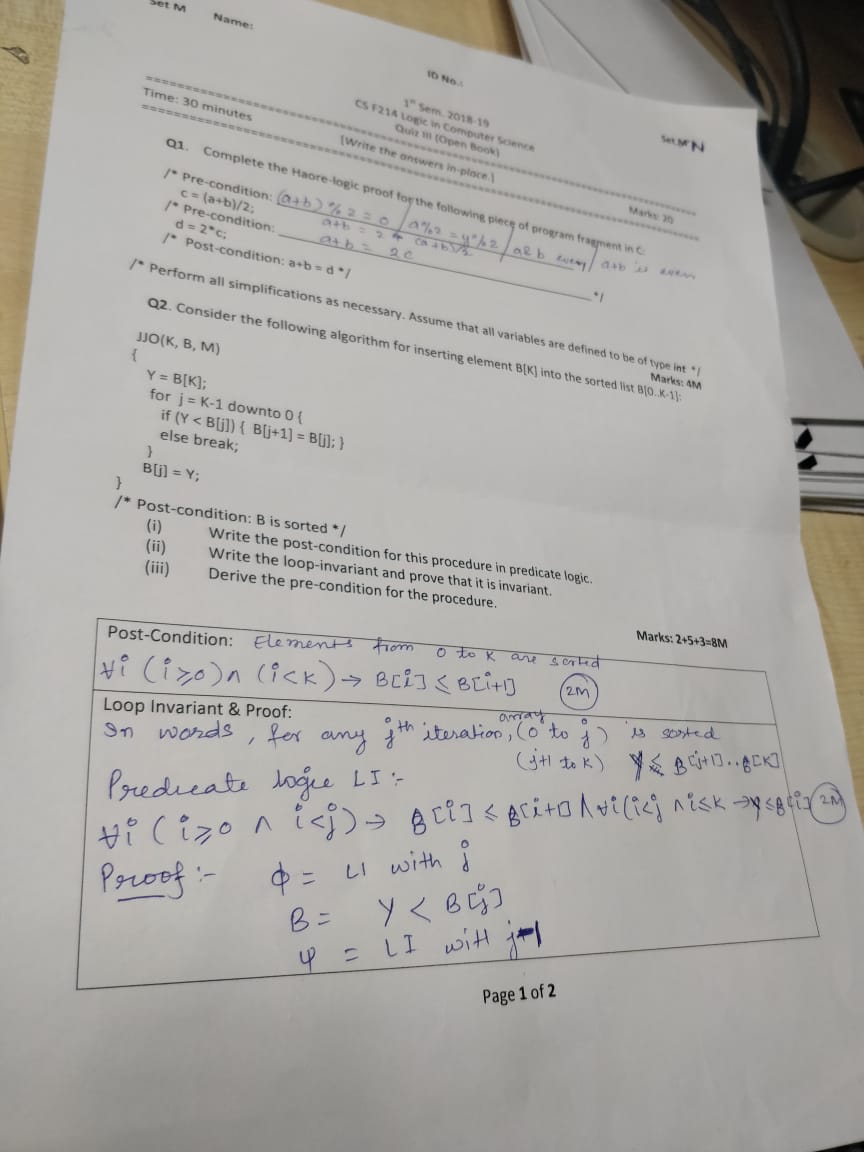 Set M Name:
ID No.:
1st Sem. 2018-19
CS F214 Logic in Computer Science
Quiz III (Open Book)
Set N
Time: 30 minutes
[Write the answers in-place.]
Marks: 20
Q1. Complete the Haore-logic proof for the following piece of program fragment in C.
/* Pre-condition: (a+b) % 2 = 0 / a%2 = y%2 / a&b even / a+b is even
c = (a+b)/2;
a+b = 2 * (a+b)/2
/* Pre-condition: a+b = 2c */
d = 2*c;
/* Post-condition: a+b = d */
/* Perform all simplifications as necessary. Assume that all variables are defined to be of type int */
Marks: 4M
Q2. Consider the following algorithm for inserting element B[K] into the sorted list B[0..K-1]:
JJO(K, B, M)
{
Y = B[K];
for j = K-1 downto 0 {
if (Y < B[j]) { B[j+1] = B[j]; }
else break;
}
B[j] = Y;
}
/* Post-condition: B is sorted */
(i) Write the post-condition for this procedure in predicate logic.
(ii) Write the loop-invariant and prove that it is invariant.
(iii) Derive the pre-condition for the procedure.
Marks: 2+5+3=8M
Post-Condition: Elements from 0 to K are sorted
∀i (i≥0)∧(i<K) → B[i] ≤ B[i+1] 2M
Loop Invariant & Proof:
In words, for any jth iteration, array (0 to j) is sorted
(j+1 to K) Y ≤ B[j+1]..B[K]
Predicate logic LI :-
∀i (i≥0 ∧ i<j) → B[i] ≤ B[i+1] ∧ ∀i(i<j ∧ i≤K → Y≤B[i]) 2M
Proof :- ϕ = LI with j
B = Y < B[j]
ψ = LI with j-1
Page 1 of 2